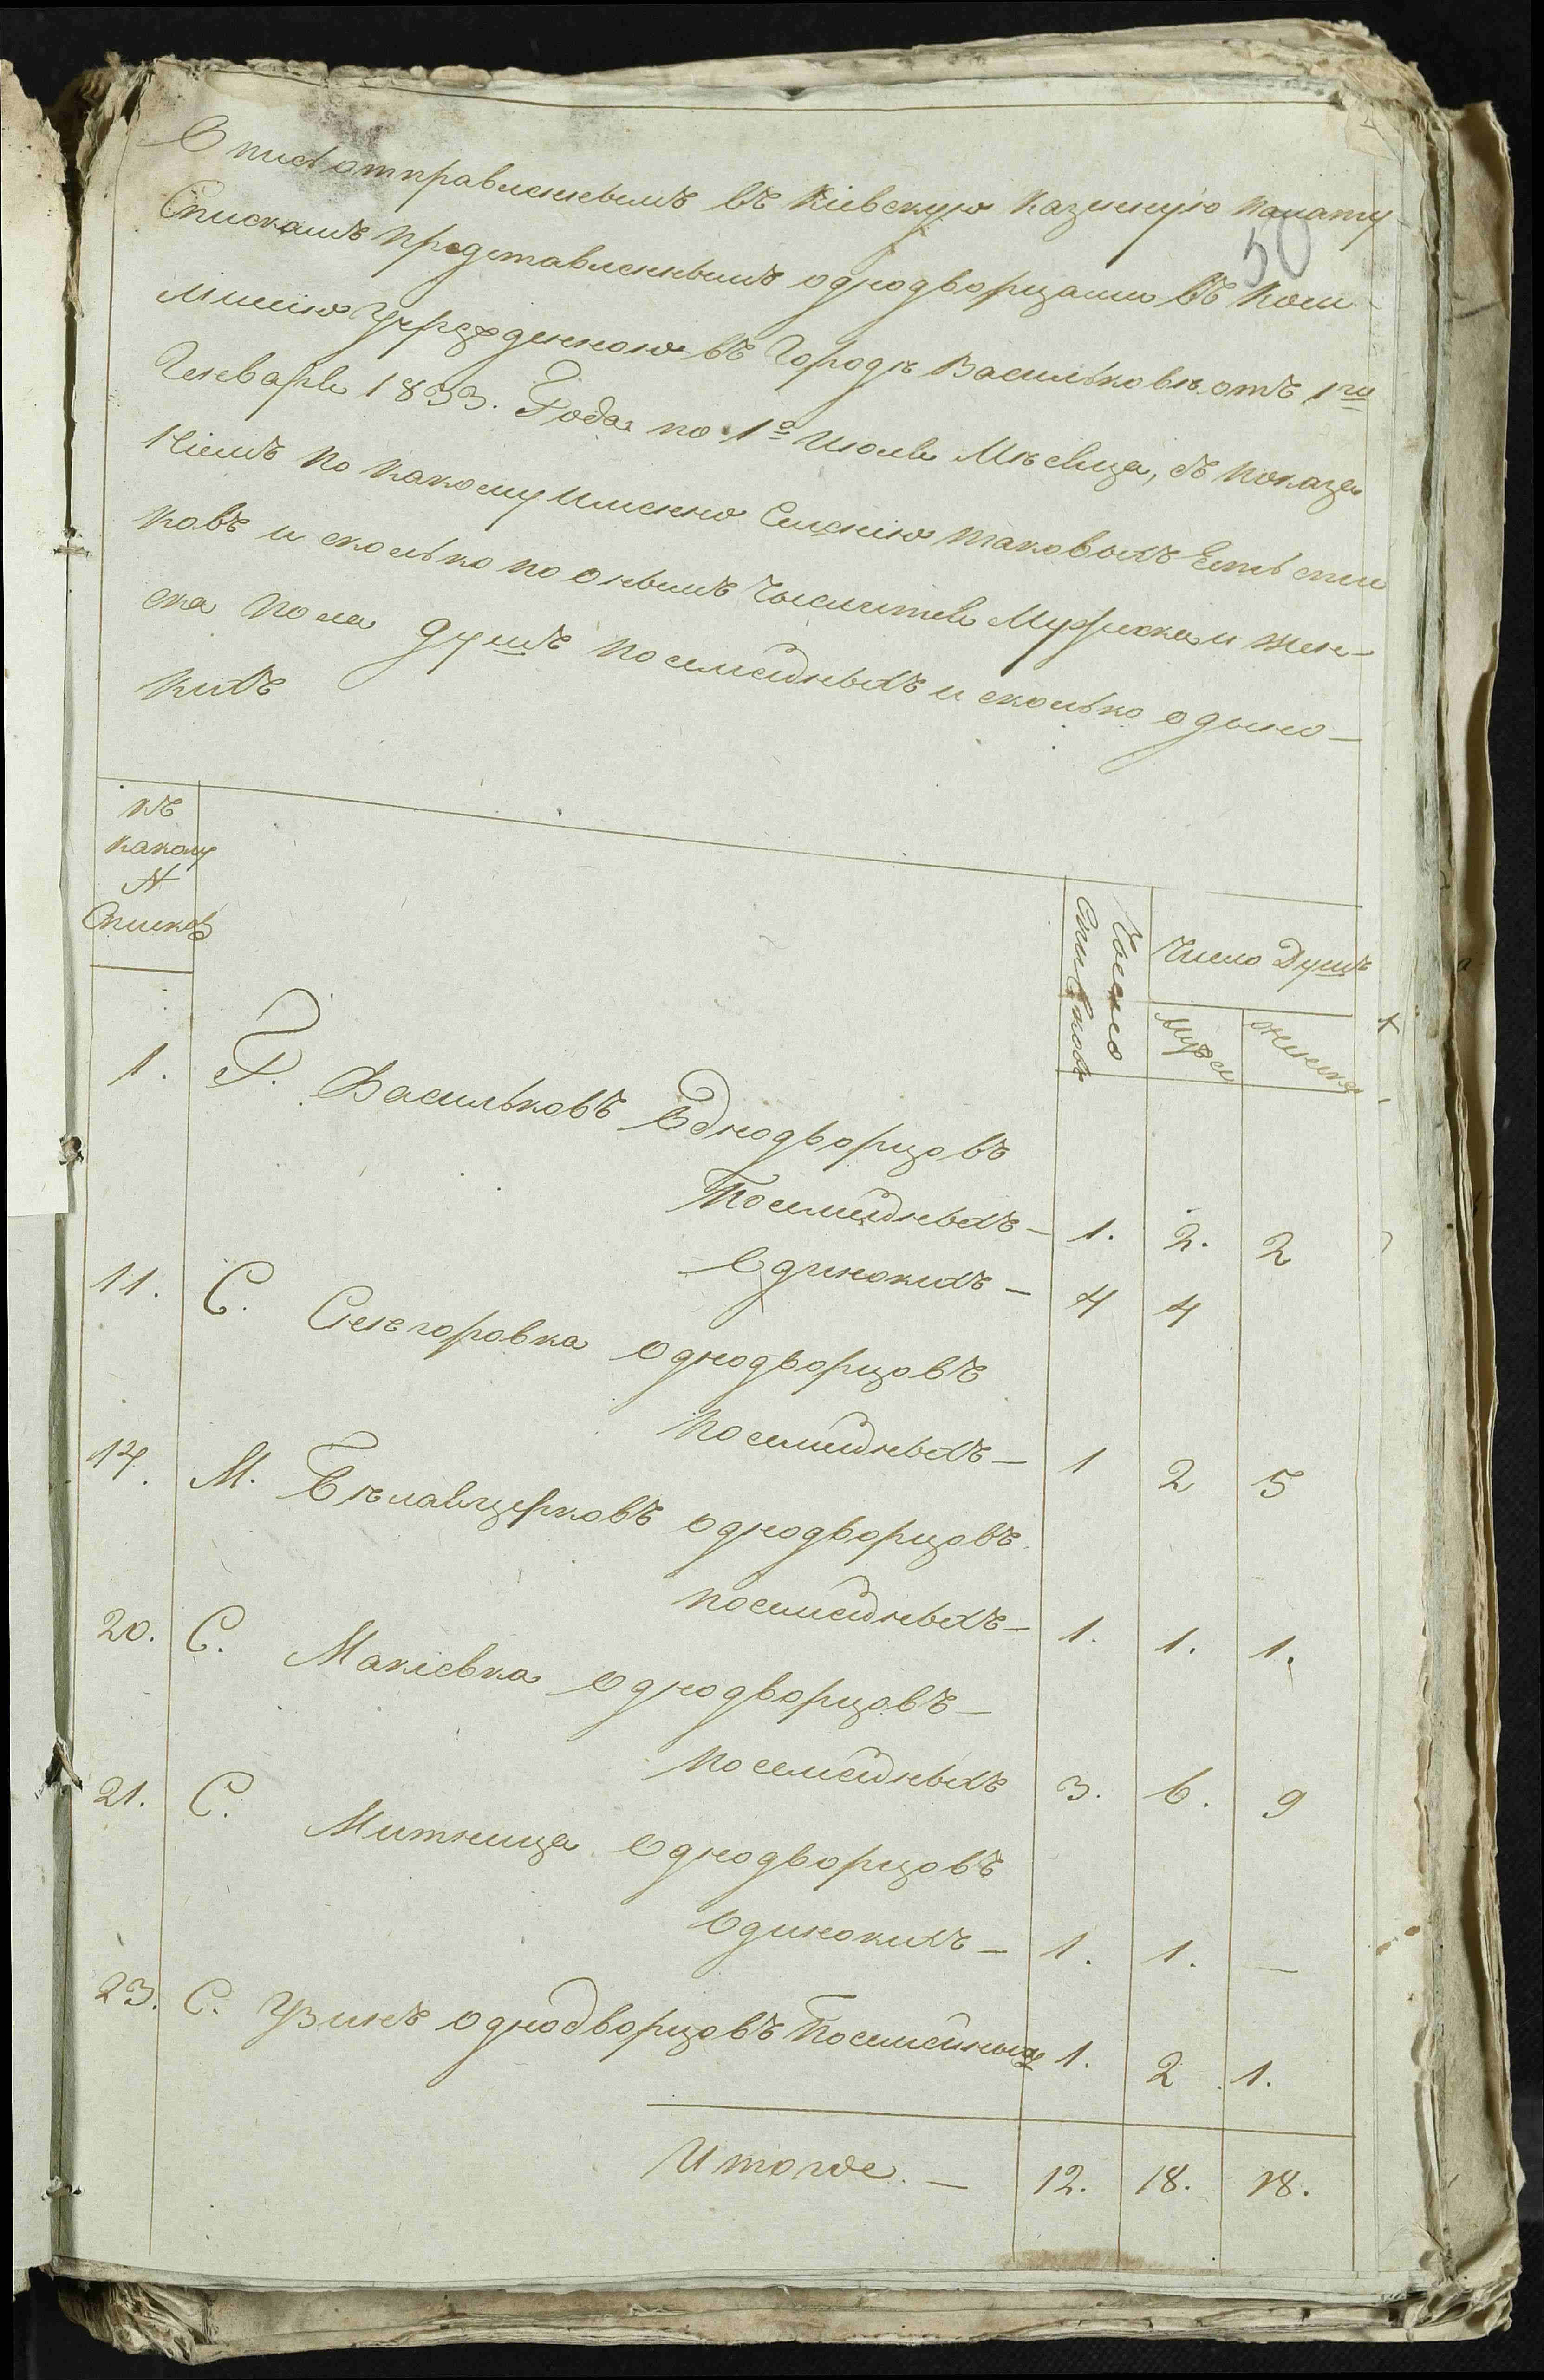 Опись отправленнымъ въ Кіевскую казенную палату
50
Спискамъ представленнымъ однодворцами въ ком-
мисію учрежденною въ Городѣ Васильковѣ отъ 1го
Генваря 1833. Года по 1е Июля Мѣсяца, съ показа
ніемъ по какому именно Селению таковыхъ Есть спис
ковъ и сколько по онымъ числится Мужеска и жен-
ска пола душъ посемейныхъ и сколько одино-
кихъ
къ
какому
N
Списковъ
Число
Списковъ
Число Душъ
мужск
женска
1. Г. Васильковъ Однодворцовъ
Посемейныхъ - 1. 2. 2
Одинокихъ - 4 4
11. С. Снегоровка однодворцовъ
посемейныхъ - 1 2 5
14. М. Белаяцерковъ однодворцовъ
посемейныхъ - 1. 1. 1.
20. С. Макіевка Однодворцовъ -
посемейныхъ 3. 6. 9
21. С. Митница Однодворцовъ
Одинокихъ - 1. 1. -
23. С. Узинъ однодворцовъ Посемейныхъ 1. 2 1.
Итого. - 12. 18. 18.